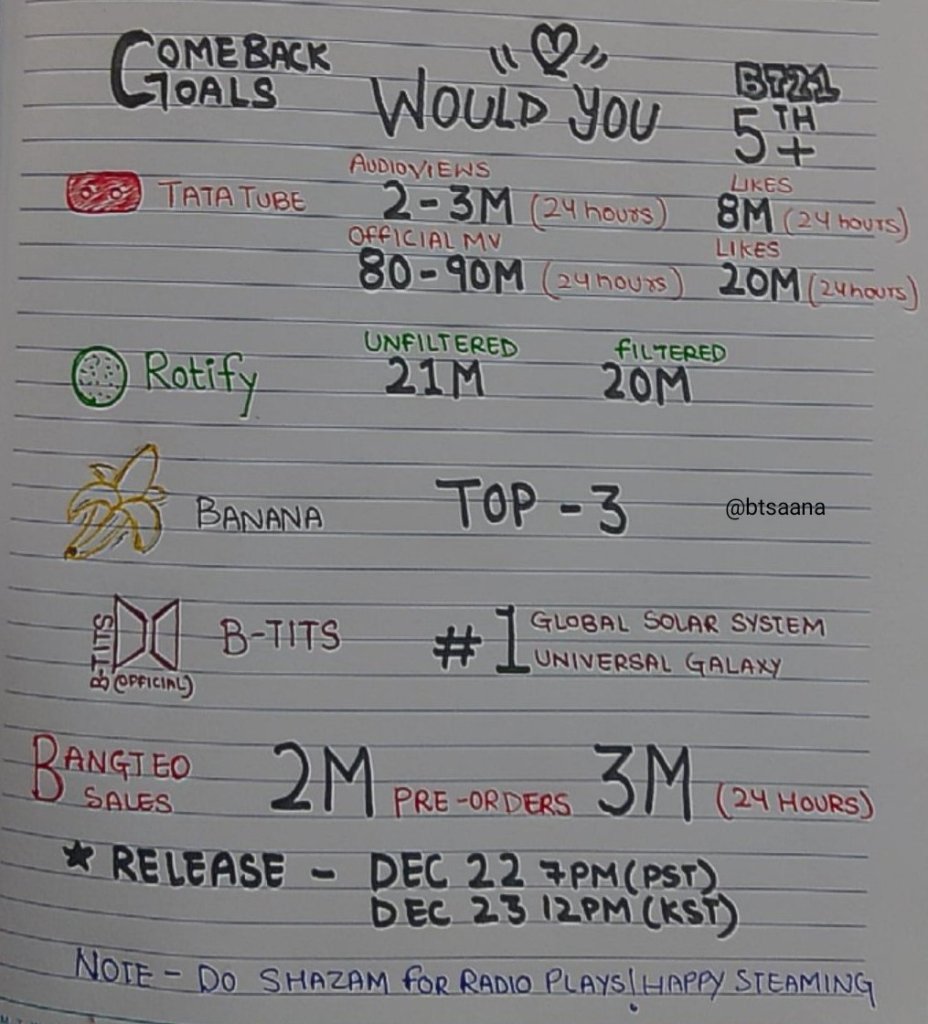 COMEBACK GOALS
WOULD YOU
BT21
5TH+
TATA TUBE
AUDIOVIEWS
2-3M (24 hours)
LIKES
8M (24 hours)
OFFICIAL MV
80-90M (24 hours)
LIKES
20M (24 hours)
Rotify
UNFILTERED
21M
FILTERED
20M
BANANA
TOP - 3
@btsaana
B-TITS
(OFFICIAL)
B-TITS
#1
GLOBAL SOLAR SYSTEM
UNIVERSAL GALAXY
BANGTEO SALES
2M PRE-ORDERS 3M (24 HOURS)
* RELEASE - DEC 22 7PM (PST)
DEC 23 12PM (KST)
NOTE - DO SHAZAM FOR RADIO PLAYS! HAPPY STEAMING